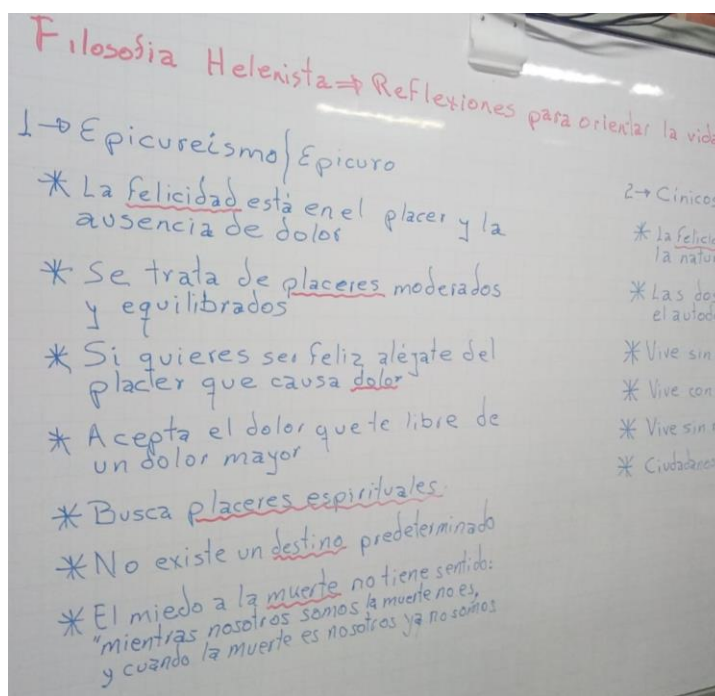 Filosofia Helenista ⇒ Reflexiones para orientar la vida
1→Epicureísmo/Epicuro
* La felicidad está en el placer y la
ausencia de dolor
* Se trata de placeres moderados
y equilibrados
* Si quieres ser feliz aléjate del
placer que causa dolor
* Acepta el dolor que te libre de
un dolor mayor
* Busca placeres espirituales.
* No existe un destino predeterminado
* El miedo a la muerte no tiene sentido:
"mientras nosotros somos la muerte no es,
y cuando la muerte es nosotros ya no somos
2→ Cínicos
* La felici
la natu
* Las do
el autod
* Vive sin
* Vive con
* Vive sin
* Ciudadanos